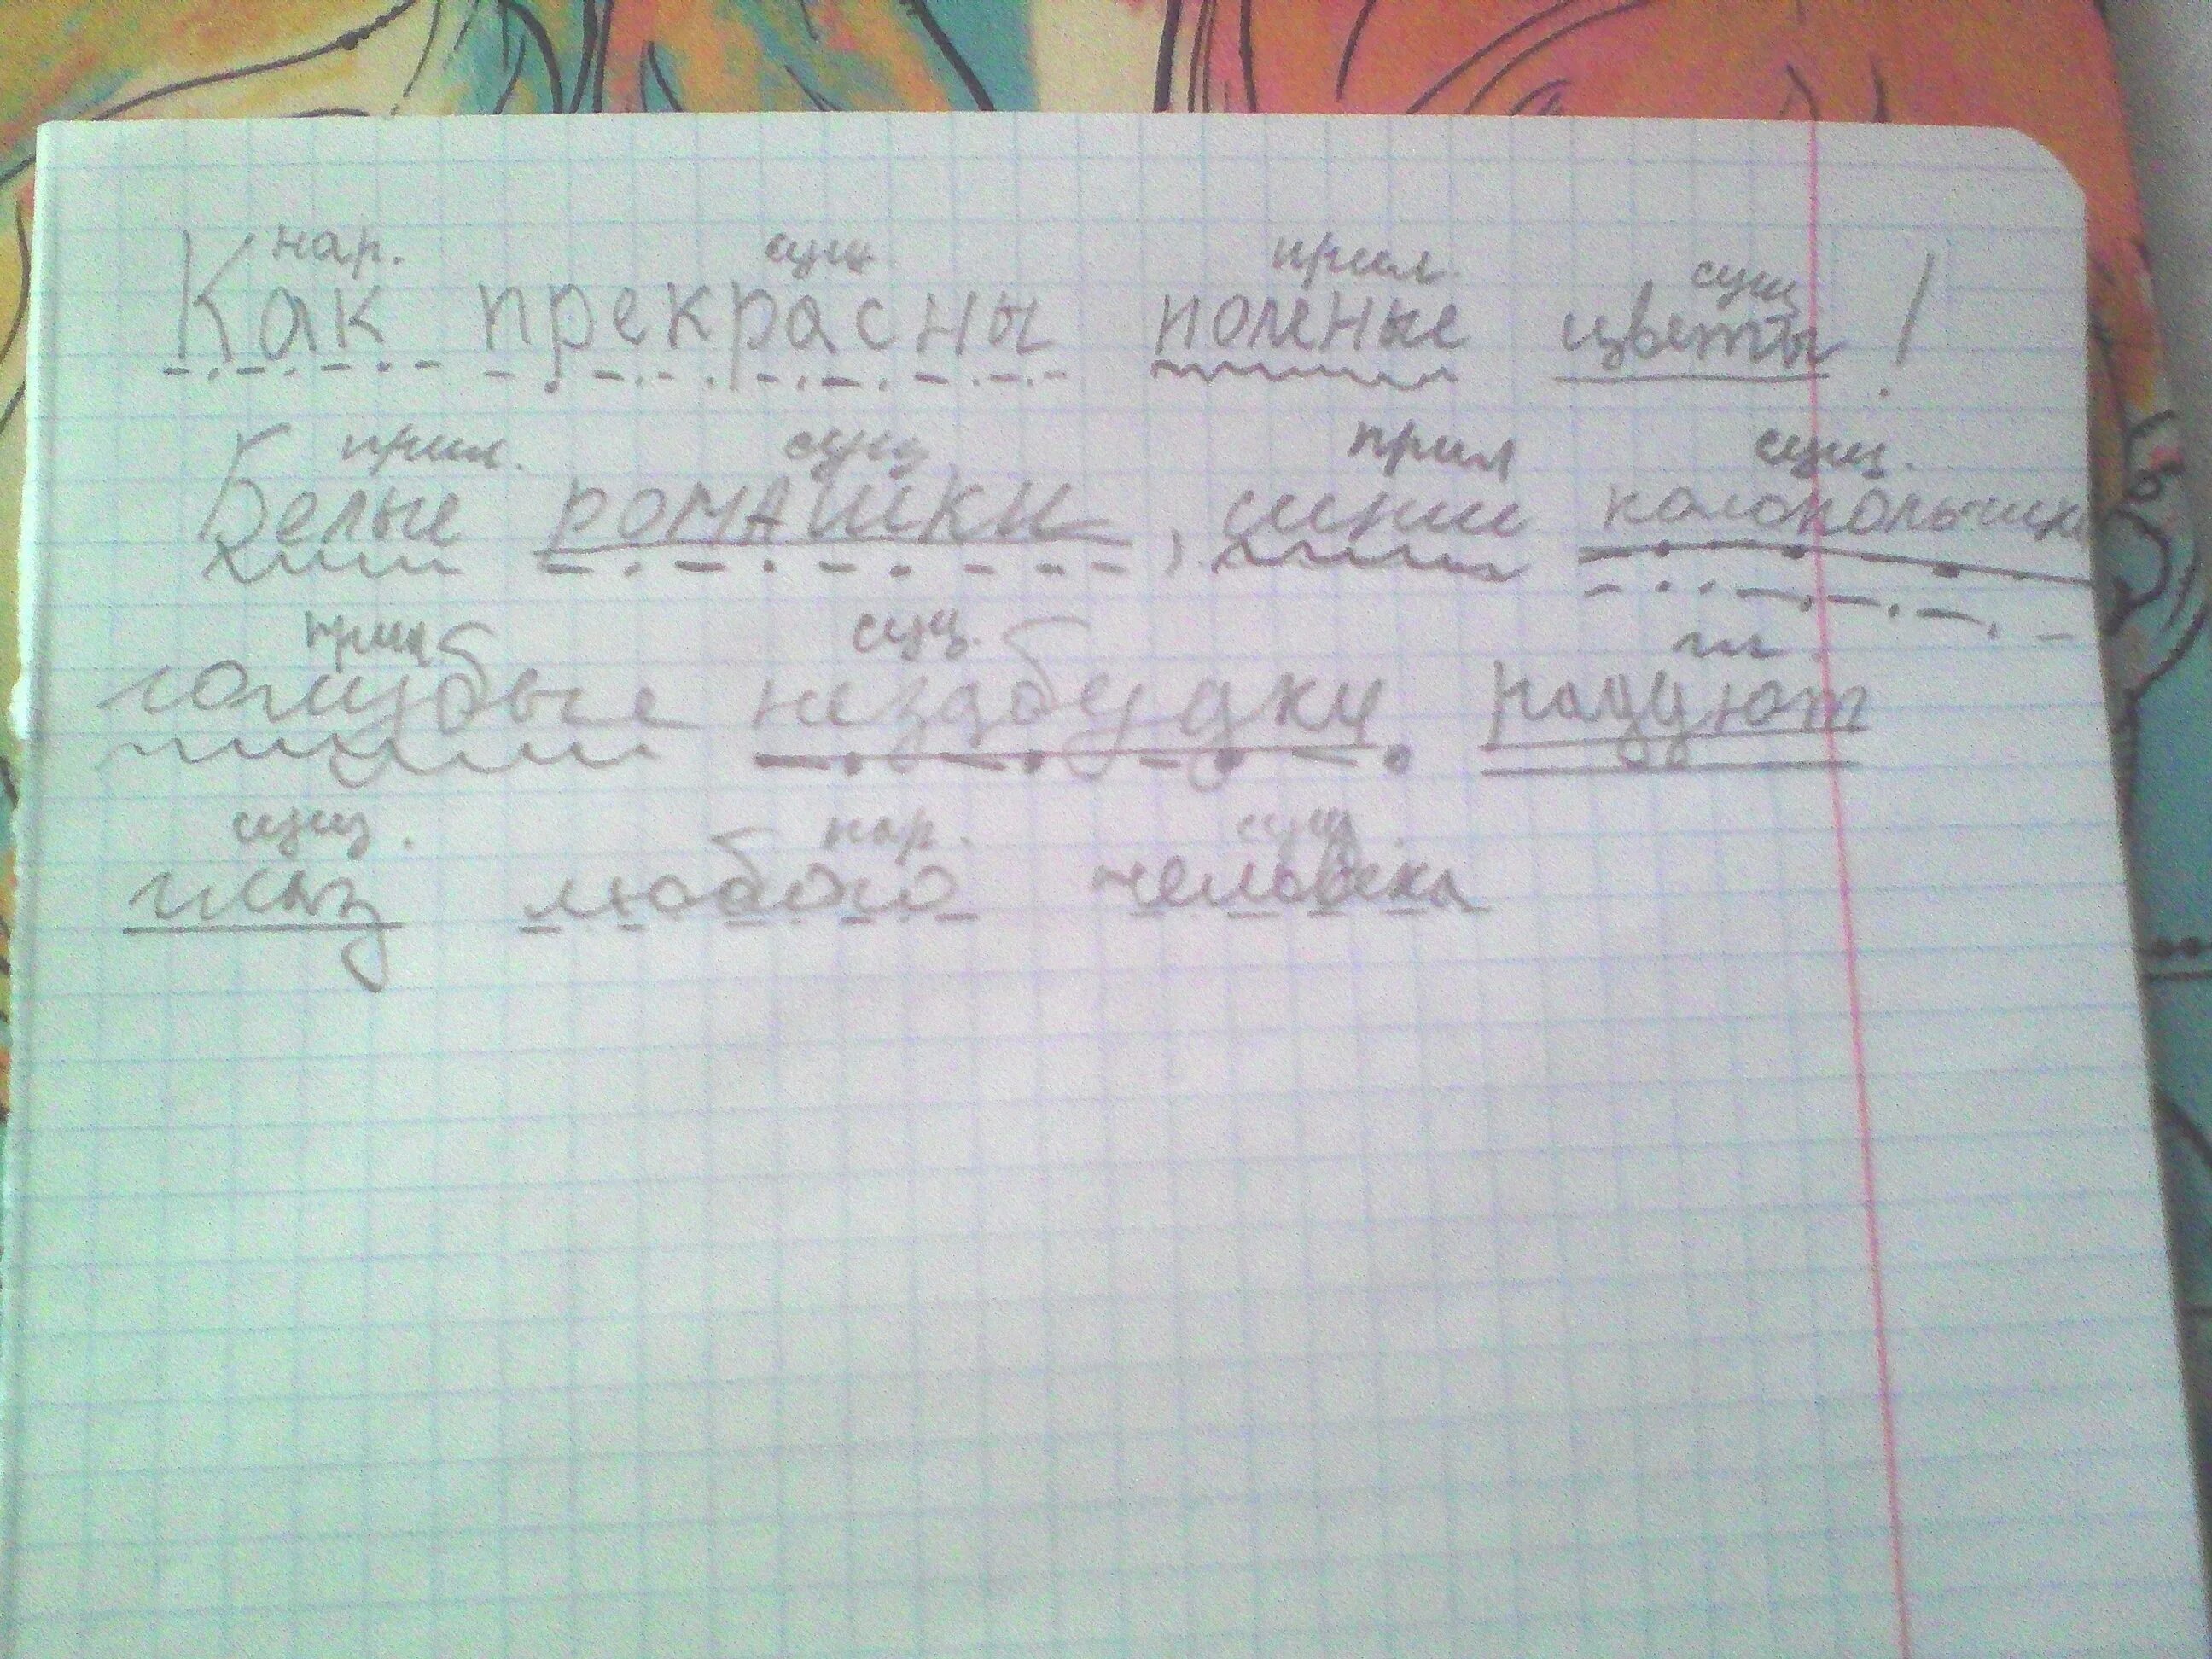 нар. сущ. прил. сущ
Как прекрасны поленые цветы!
прил. сущ. прил сущ.
Белые ромашки, синии колокольчики
прил сущ. гл.
голубые незабудки радуют
сущ. нар. сущ.
глаз любого человека